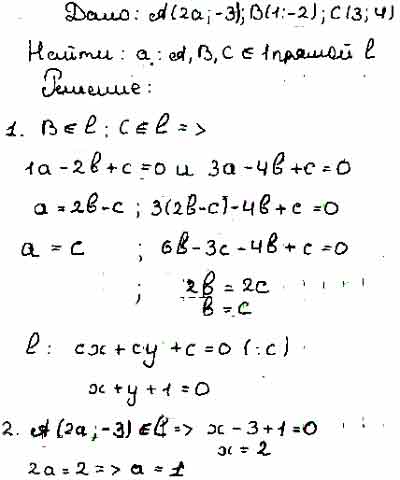 Дано: A(2a; -3); B(1; -2); C(3; 4)
Найти: a: A, B, C ∈ 1 прямой l
Решение:
1. B ∈ l; C ∈ l =>
1a - 2b + c = 0 и 3a - 4b + c = 0
a = 2b - c ; 3(2b - c) - 4b + c = 0
a = c ; 6b - 3c - 4b + c = 0
; 2b = 2c
b = c
l: cx + cy + c = 0 (:c)
x + y + 1 = 0
2. A(2a; -3) ∈ l => x - 3 + 1 = 0
x = 2
2a = 2 => a = 1